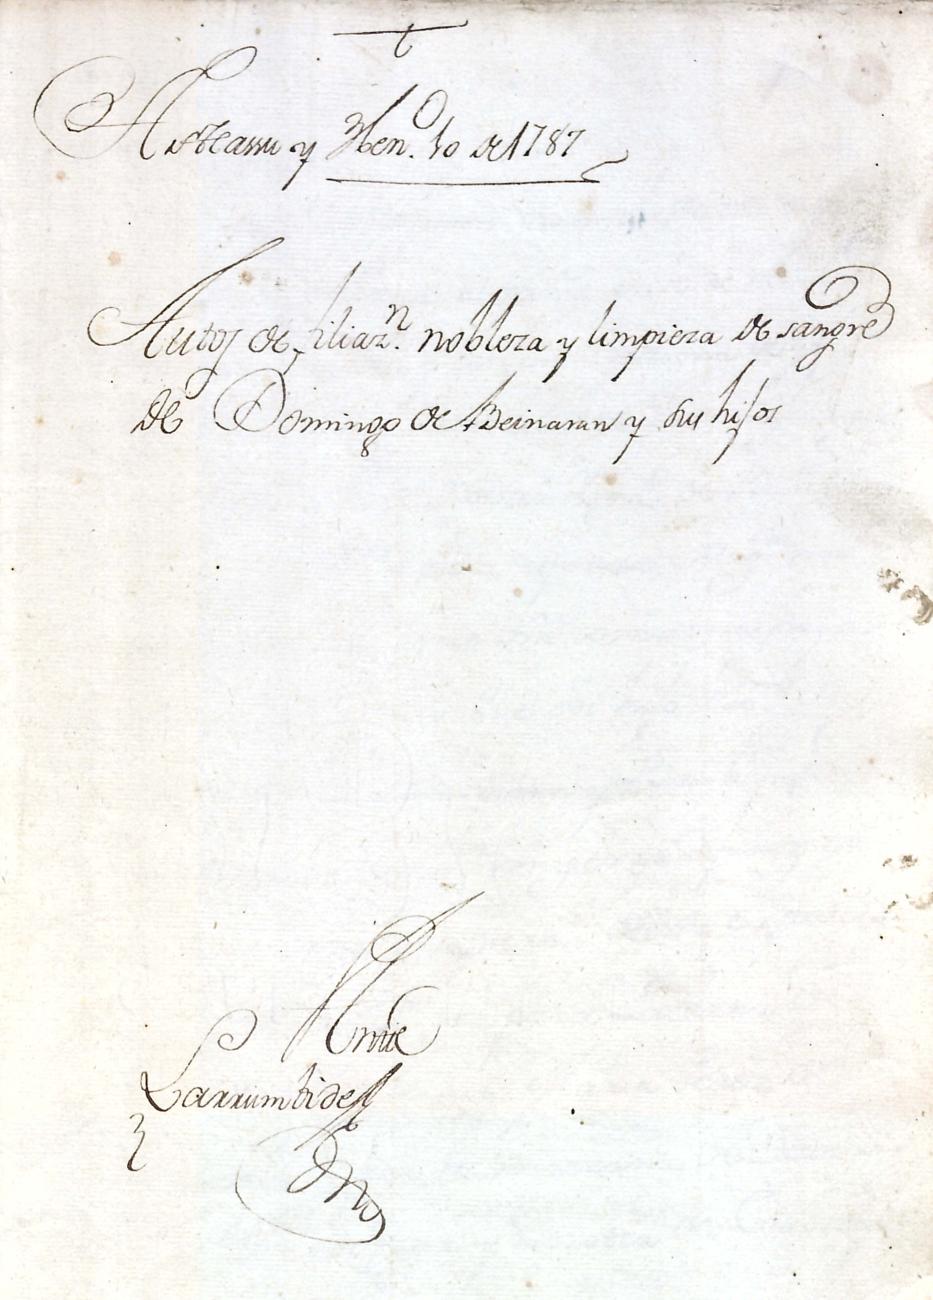 Asteasu y Hen.o 10 de 1787
Autos de filiaz.n nobleza y limpieza de sangre
de Domingo de Beinaran y sus hijos
Ante
Larrumbide